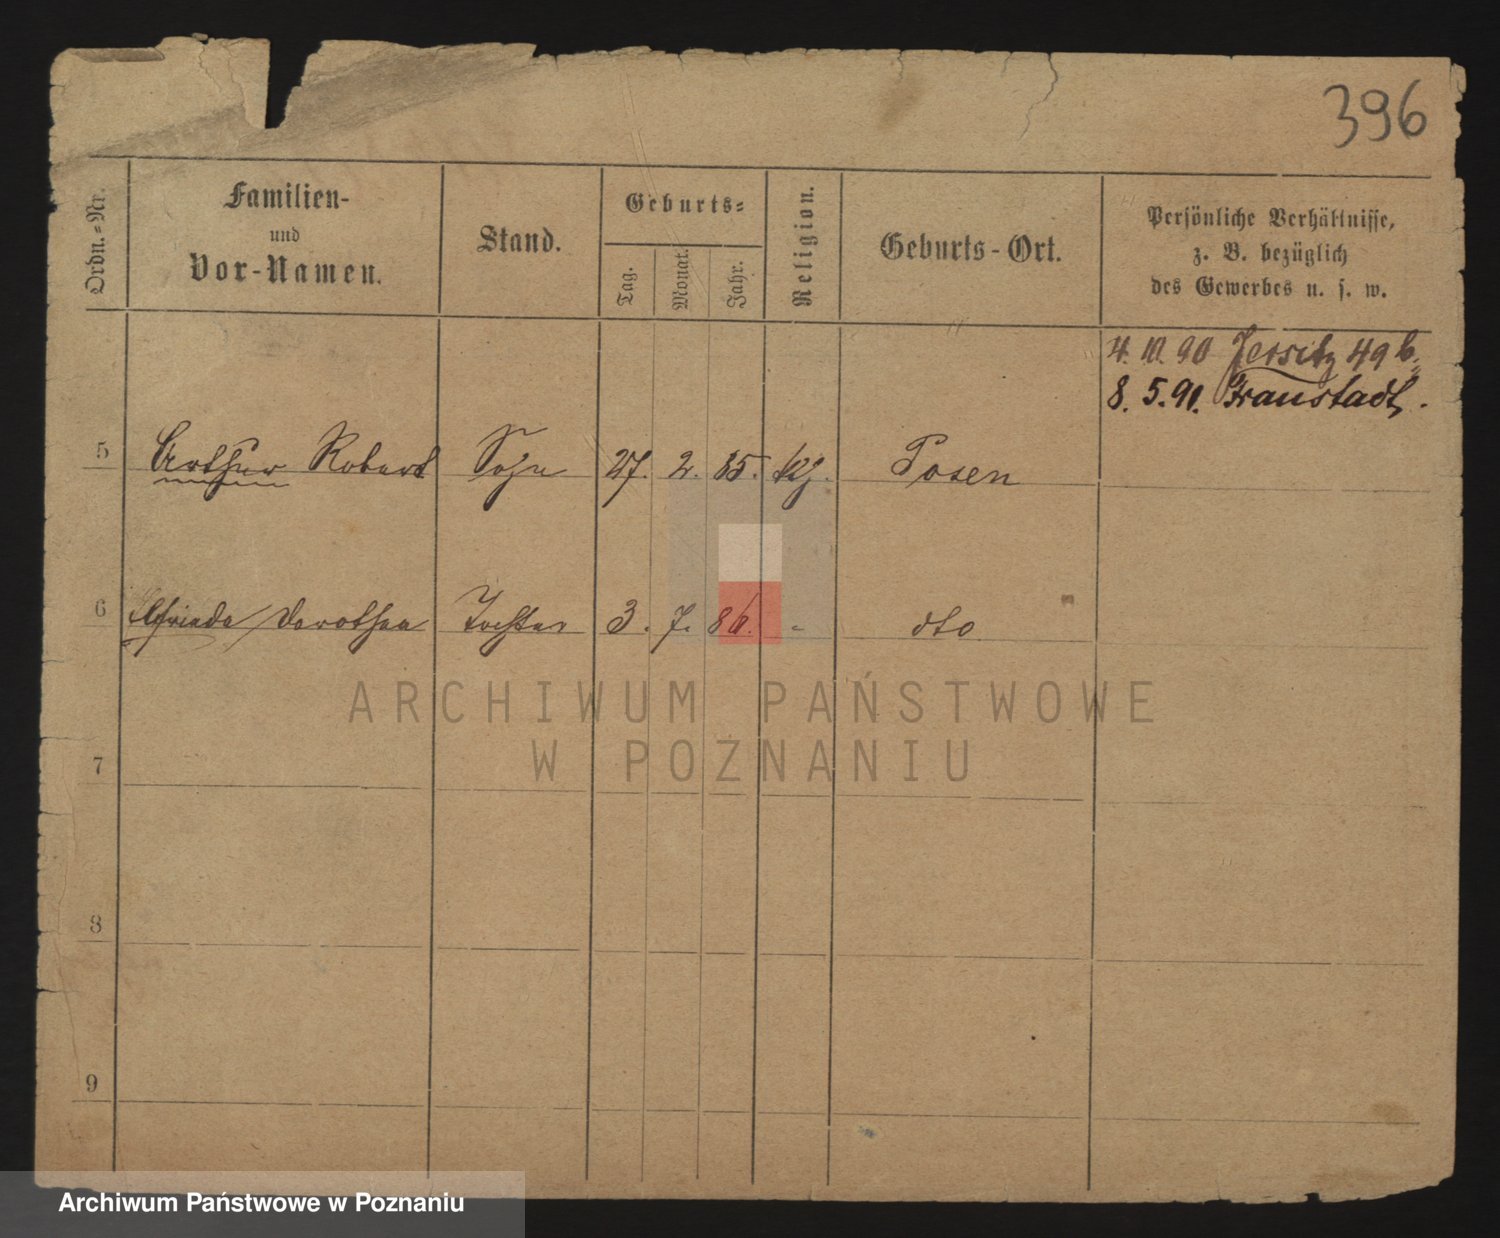 396
Ordn.-Nr.
Familien-
und
Vor-Namen.
Stand.
Geburts-
Tag.
Monat.
Jahr.
Religion.
Geburts-Ort.
Persönliche Verhältnisse,
z. B. bezüglich
des Gewerbes u. s. w.
4. 10. 90 Jersitz 49 b.
8. 5. 91. Fraustadt.
5 Arthur Robert Sohn 27. 2. 85. Posen
6 Elfriede Dorothea Tochter 3. 7. 86. - dto
7
8
9
ARCHIWUM PAŃSTWOWE
W POZNANIU
Archiwum Państwowe w Poznaniu